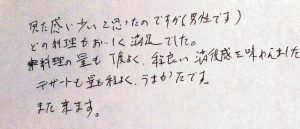 見た感じ少いと思ったのですが(男性です)
どの料理もおいしく満足でした。
料理の量も丁度よく、程良い満腹感を味わえました
デザートも量も程よく、うまかたです。
また来ます。